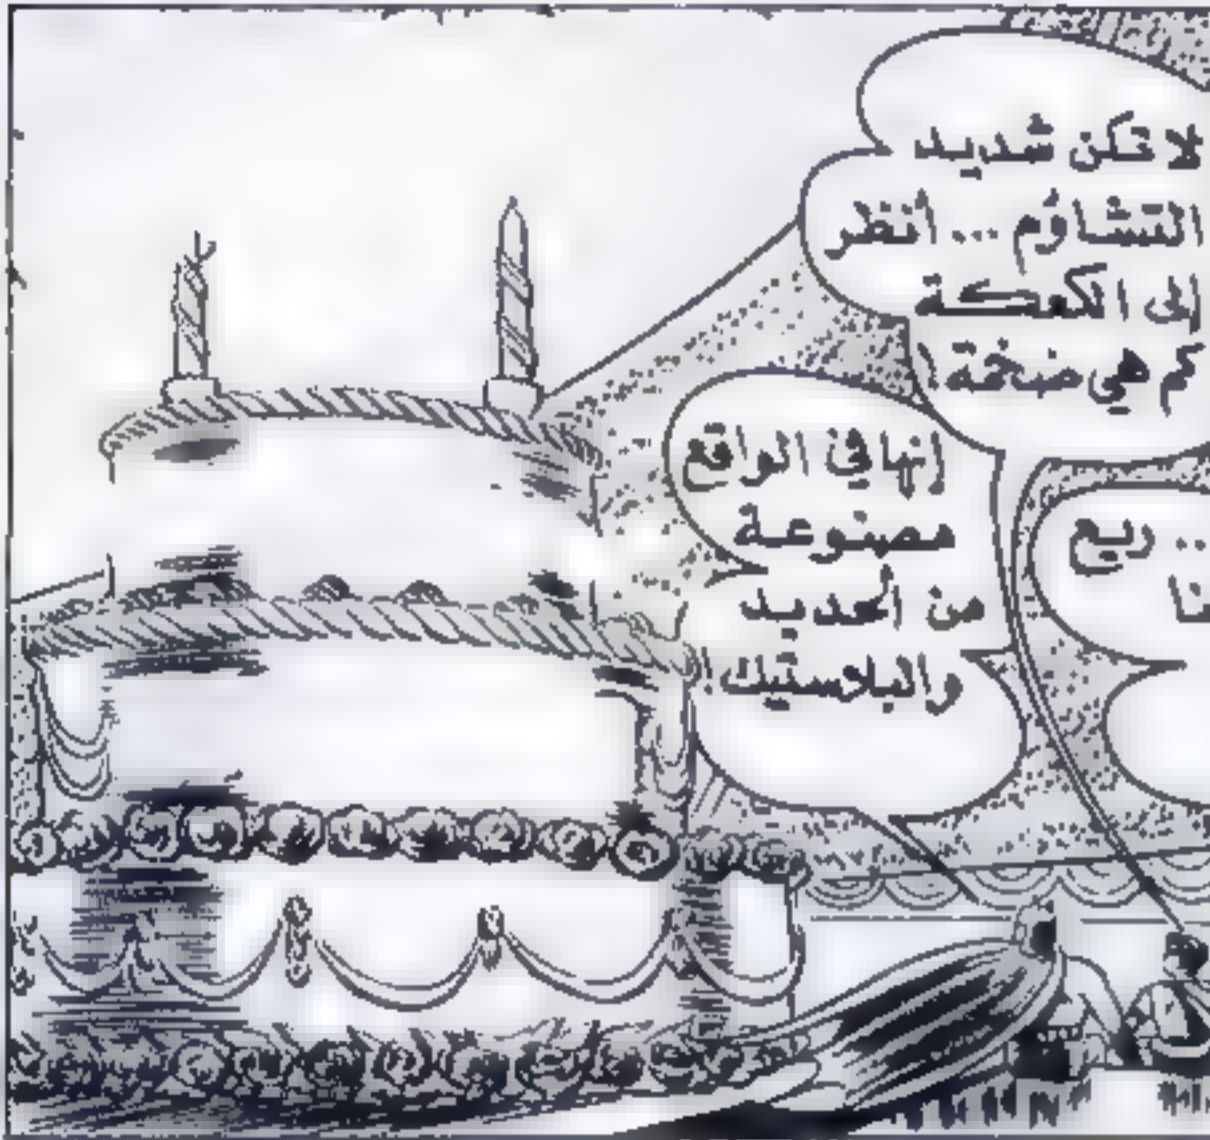 لا تكن شديد
التشاؤم ... أنظر
إلى الكعكة
كم هي ضخمة!
إنها في الواقع
مصنوعة
من الحديد
والبلاستيك!
.. ربع